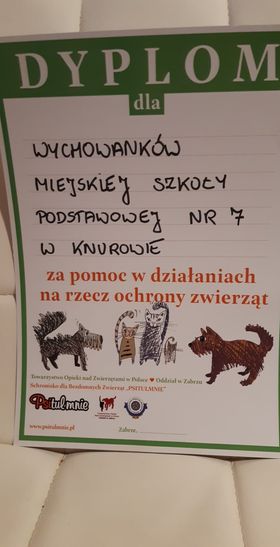 DYPLOM
dla
WYCHOWANKÓW
MIEJSKIEJ SZKOŁY
PODSTAWOWEJ NR 7
W KNUROWIE
za pomoc w działaniach
na rzecz ochrony zwierząt
Towarzystwo Opieki nad Zwierzętami w Polsce ♥ Oddział w Zabrzu
Schronisko dla Bezdomnych Zwierząt „PSITULMNIE”
Psitulmnie
www.psitulmnie.pl
Zabrze,